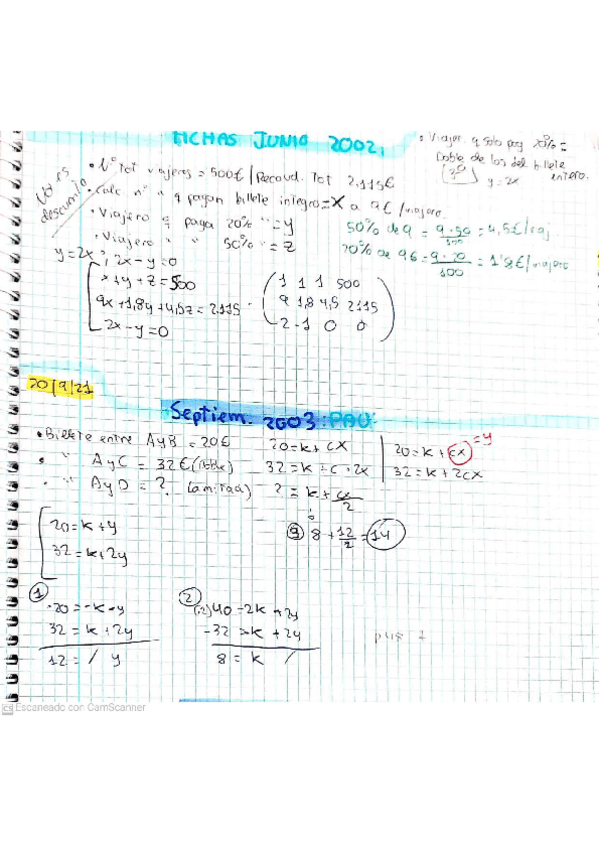 FICHAS JUNIO 2002.
• Viajer. q solo pag 20% =
Doble de los del billete
entero.
y = 2x
• Nº Tot viajeros = 500€/Recaud. Tot 2.115€
• Calc nº " q pagan billete integro = X a 9€/viajero
• Viajero q paga 20% " = y
• Viajero " " 50% " = z
descuento
50% de 9 = 9·50/100 = 4,5€/viaj
20% de 9€ = 9·20/100 = 1'8€/viajero
y = 2x ; 2x - y = 0
x + y + z = 500
9x + 1,8y + 4,5z = 2.115
2x - y = 0
1 1 1 500
9 1,8 4,5 2115
2 -1 0 0
20/9/21
Septiem. 2003: PAU:
• Billete entre A y B = 20€
• " " A y C = 32€ (doble)
• " " A y D = ? (mitad)
20 = k + cx
32 = k + c · 2x
? = k + cx/2
20 = k + cx = y
32 = k + 2cx
20 = k + y
32 = k + 2y
③ 8 + 12/2 = 14
①
-20 = -k - y
32 = k + 2y
12 = / y
②
(·2) 40 = 2k + 2y
-32 = k + 2y
8 = k /
CS Escaneado con CamScanner